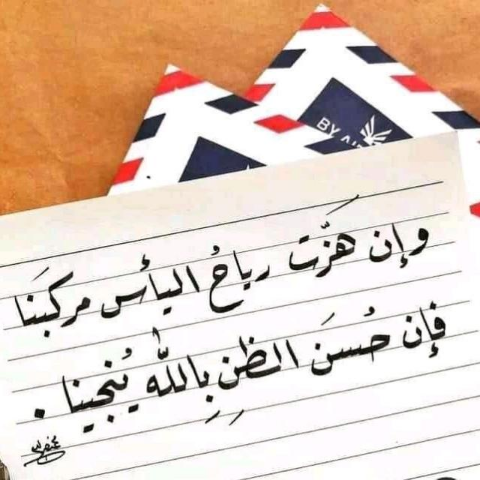 BY AIR
وإن هَزّت رياحُ اليأس مركبَنا
فإن حُسنَ الظنِ بِالله يُنجينا .